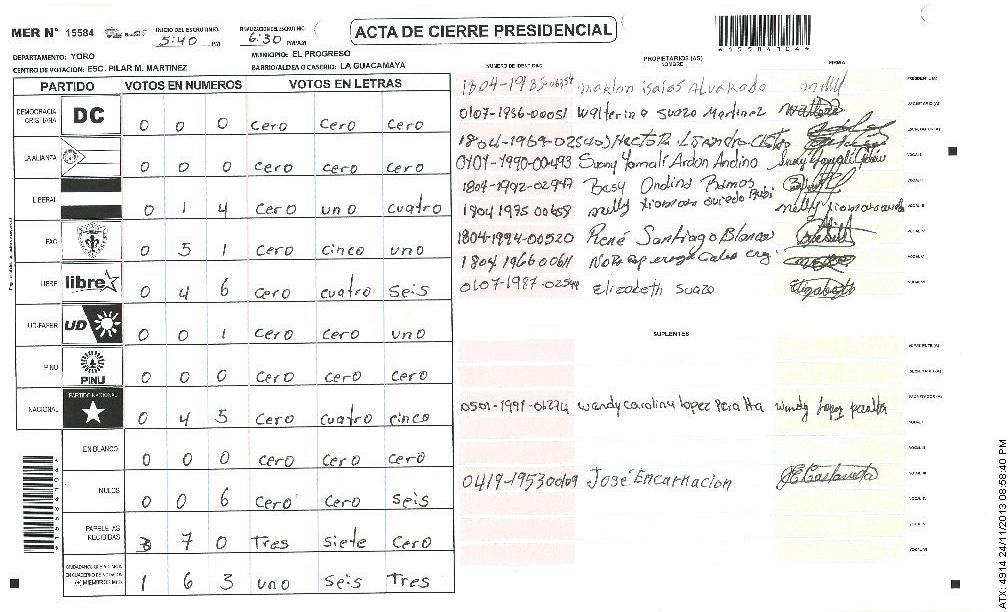 MER Nº 15584 INICIO DEL ESCRUTINIO: 5:40 PM FINALIZACION DEL ESCRUTINIO: 6:30 PM/AM
ACTA DE CIERRE PRESIDENCIAL
DEPARTAMENTO: YORO MUNICIPIO: EL PROGRESO
CENTRO DE VOTACION: ESC. PILAR M. MARTINEZ BARRIO/ALDEA O CASERIO: LA GUACAMAYA
PARTIDO VOTOS EN NUMEROS VOTOS EN LETRAS
DEMOCRACIA CRISTIANA DC 0 0 0 Cero Cero Cero
LA ALIANZA 0 0 0 Cero Cero Cero
LIBERAL 0 1 4 Cero uno cuatro
PAC 0 5 1 Cero cinco uno
LIBRE libre 0 4 6 Cero cuatro Seis
UD-FAPER UD 0 0 1 Cero Cero uno
PINU PINU 0 0 0 Cero Cero Cero
NACIONAL PARTIDO NACIONAL 0 4 5 Cero Cuatro cinco
EN BLANCO 0 0 0 Cero Cero Cero
NULOS 0 0 6 Cero Cero Seis
PAPELETAS RECIBIDAS 3 7 0 Tres siete Cero
1 6 3 uno Seis Tres
PROPIETARIOS (AS)
NUMERO DE IDENTIDAD NOMBRE FIRMA
Marlon isaias Alvarado
0107-1936-00051 Walterino Suazo Martinez
0101-1990-00493 Suny Yamali Ardon Andino
1804-1992-02947 Besy Ondina Ramos
1804 1995 00658 nelly xiomara oviedo
1804-1994-00520 René Santiago Blanco
1804 1966 00611
0107-1987-02548 Elizabeth Suazo Elizabeth
SUPLENTES
wendy carolina lopez Peralta wendy lopez peralta
José Encarnacion JECastaneda
ATX: 4914 24/11/2013 08:58:40 PM